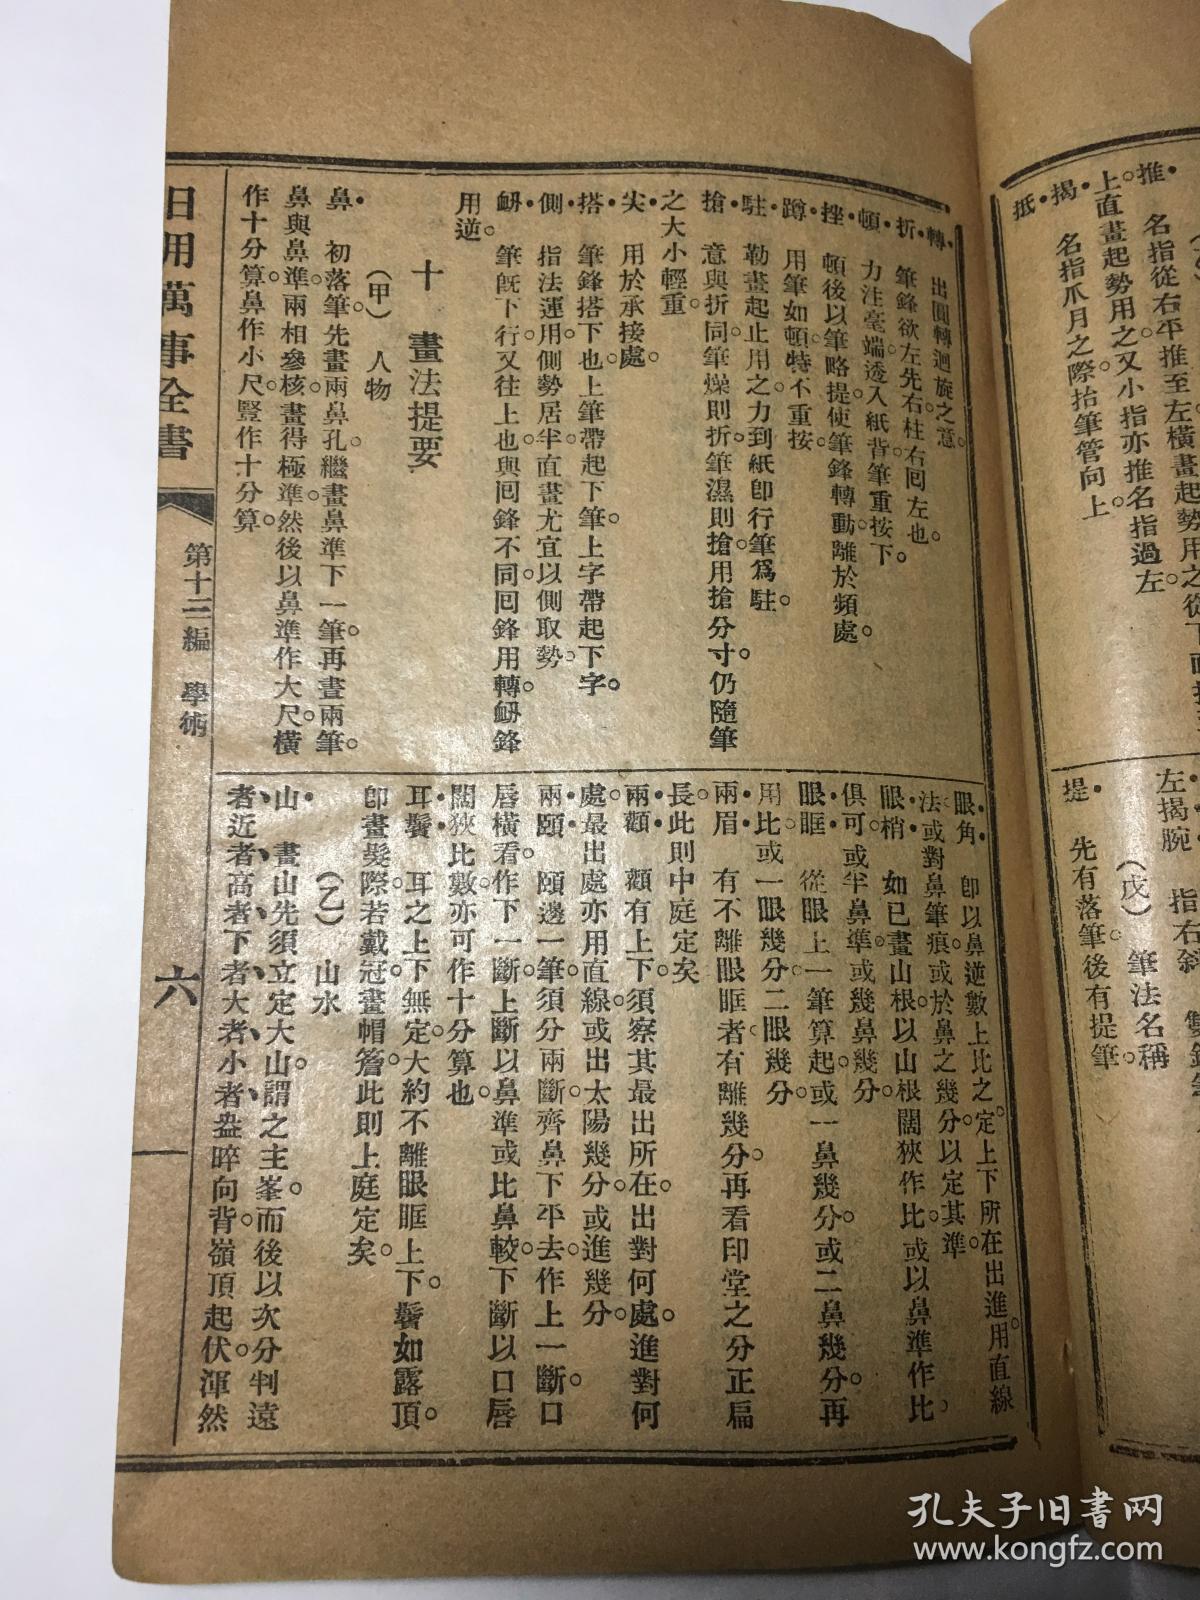 推。 名指從右平推至左橫畫起勢用之從下
上直畫起勢用之。又小指亦推名指過左
揭。 名指爪月之際抬筆管向上
抵。
左揭腕 指右
(戊) 筆法名稱
提。 先有落筆。後有提筆。
轉。 出圓轉迴旋之意。
折。 筆鋒欲左先右。柱右回左也。
頓。 力注毫端。透入紙背。筆重按下。
挫。 頓後以筆略提。使筆鋒轉動。離於頻處。
蹲。 用筆如頓。特不重按。
駐。 勒畫起止用之。力到紙卽行筆爲駐。
搶。 意與折同。筆燥則折。筆濕則搶。用搶分寸。仍隨筆
之大小輕重。
尖。 用於承接處。
搭。 筆鋒搭下也。上筆帶起下筆。上字帶起下字。
側。 指法運用。側勢居半。直畫尤宜以側取勢。
衂。 筆旣下行。又往上也。與回鋒不同。回鋒用轉。衂鋒
用逆。
十 畫法提要
(甲) 人物
鼻。 初落筆。先畫兩鼻孔。繼畫鼻準下一筆。再畫兩筆。
鼻與鼻準兩相參核。畫得極準。然後以鼻準作大尺。橫
作十分算。鼻作小尺。豎作十分算。
眼角。 卽以鼻逆數上比之。定上下所在。出進。用直線
法。或對鼻筆痕。或於鼻之幾分。以定其準。
眼梢。 如已畫山根。以山根闊狹作比。或以鼻準作比。
俱可。或半鼻準。或幾鼻幾分。
眼眶。 從眼上一筆算起。或一鼻幾分。或二鼻幾分。再
用比。或一眼幾分。二眼幾分。
兩眉。 有不離眼眶者。有離幾分。再看印堂之分正扁
長。此則中庭定矣。
兩顴。 顴有上下。須察其最出所在。出對何處。進對何
處。最出處亦用直線。或出太陽幾分。或進幾分。
兩頤。 頤邊一筆。須分兩斷。齊鼻下平去。作上一斷。口
唇橫看。作下一斷。上斷以鼻準或比鼻較。下斷以口唇
闊狹比數。亦可作十分算也。
耳鬢。 耳之上下無定。大約不離眼眶上下。鬢如露頂。
卽畫髮際。若戴冠。畫帽簷。此則上庭定矣。
(乙) 山水
山。 畫山先須立定大山。謂之主峯。而後以次分判遠
者近者高者下者大者小者。盎晬向背。嶺頂起伏。渾然
日用萬事全書
第十三編 學術
六
孔夫子旧书网
www.kongfz.com